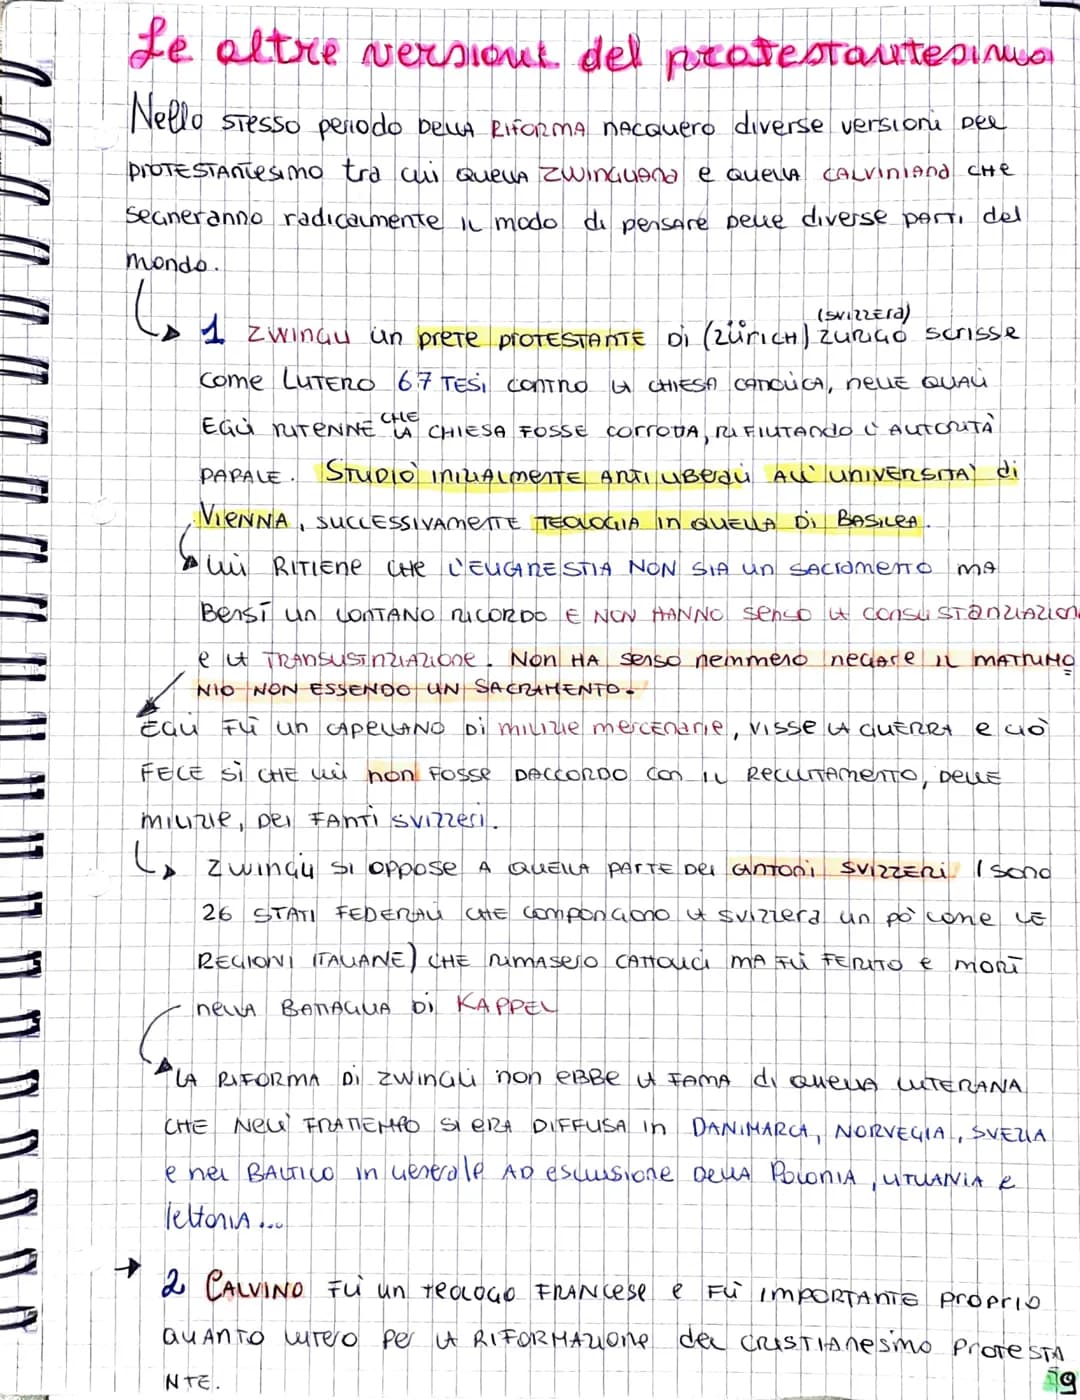 Le altre versioni del protestantesimo
Nello stesso periodo DELLA RIFORMA nacquero diverse versioni DEL
PROTESTANTESIMO tra cui QUELLA ZWINGLIANA e QUELLA CALVINIANA CHE
segneranno radicalmente IL modo di pensare DELLE diverse PARTI del
mondo.
(SVIZZERA)
1 ZWINGLI un prete PROTESTANTE DI (ZÜRICH) ZURIGO scrisse
COME LUTERO 67 TESI CONTRO LA CHIESA CATTOLICA, NELLE QUALI
EGLI RITENNE CHE LA CHIESA FOSSE CORROTTA, RIFIUTANDO L'AUTORITÀ
PAPALE. STUDIÒ INIZIALMENTE ARTI LIBERALI ALL'UNIVERSITA' di
VIENNA, SUCCESSIVAMENTE TEOLOGIA IN QUELLA DI BASILEA.
LUI RITIENE CHE L'EUCARESTIA NON SIA un SACRAMENTO MA
BENSÍ un LONTANO RICORDO E NON HANNO SENSO LA CONSUSTANZIAZION
e LA TRANSUSTNZIAZIONE. NON HA senso nemmeno negare IL MATRIMO
NIO NON ESSENDO UN SACRAMENTO.
EGLI FU un CAPELLANO DI milizie mercenarie, VISSE LA GUERRA e CIÒ
FECE SÌ CHE LUI non FOSSE DACCORDO con IL RECLUTAMENTO, DELLE
MILIZIE, DEI FANTI SVIZZERI.
ZWINGLI SI OPPOSE A QUELLA PARTE DEI CANTONI SVIZZERI (sono
26 STATI FEDERALI CHE compongono LA svizzera un pò come LE
REGIONI ITALIANE) CHE rimasero CATTOLICI MA FU FERITO e MORÌ
nella BATTAGLIA DI KAPPEL
LA RIFORMA DI ZWINGLI non EBBE LA FAMA di QUELLA LUTERANA
CHE NELL'FRATTEMPO SI ERA DIFFUSA IN DANIMARCA, NORVEGIA, SVEZIA
e nel BALTICO IN GENERALE AD ESCLUSIONE DELLA POLONIA, LITUANIA e
lettonia...
2 CALVINO FU un TEOLOGO FRANCESE e FU IMPORTANTE PROPRIO
QUANTO LUTERO Per LA RIFORMAZIONE del CRISTIANESIMO PROTESTA
NTE.
19